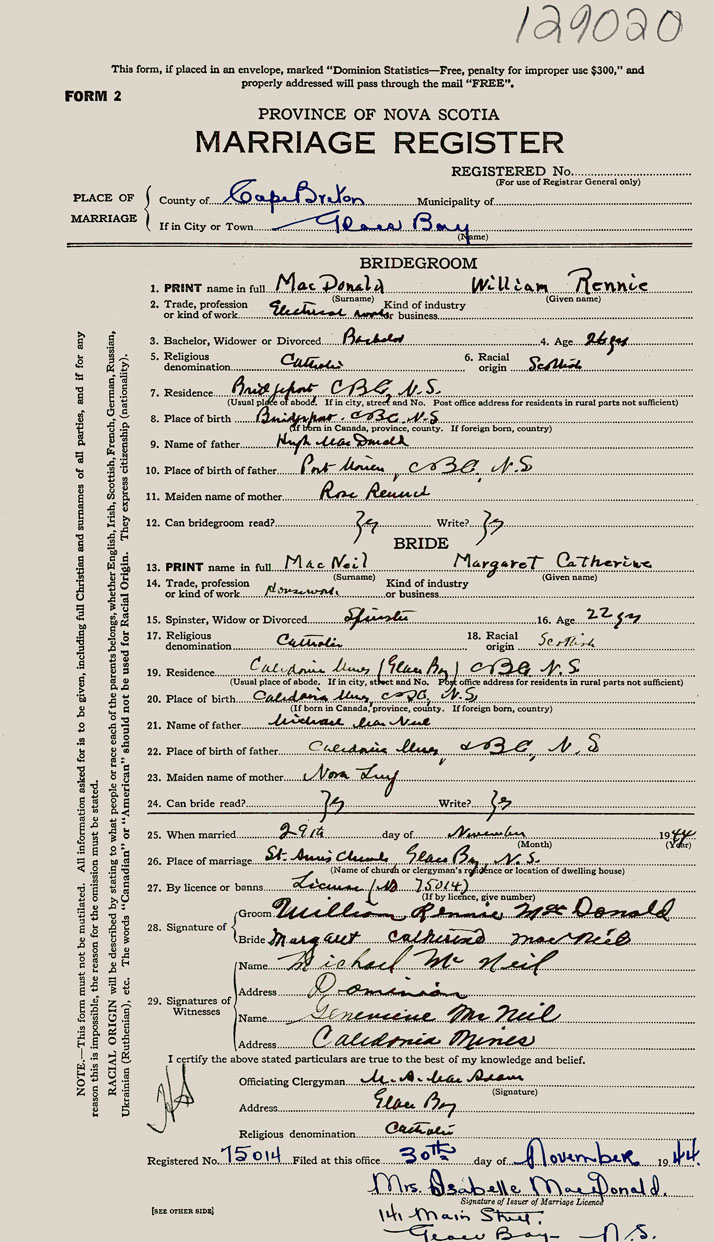 129020
This form, if placed in an envelope, marked "Dominion Statistics—Free, penalty for improper use $300," and
properly addressed will pass through the mail "FREE".
FORM 2
PROVINCE OF NOVA SCOTIA
MARRIAGE REGISTER
REGISTERED No.
(For use of Registrar General only)
PLACE OF MARRIAGE
County of Cape Breton Municipality of
If in City or Town Glace Bay
(Name)
BRIDEGROOM
1. PRINT name in full MacDonald William Rennie
(Surname) (Given name)
2. Trade, profession or kind of work Electrical worker Kind of industry or business
3. Bachelor, Widower or Divorced Bachelor 4. Age 26 yrs
5. Religious denomination Catholic 6. Racial origin Scottish
7. Residence Bridgeport, C.B.C., N.S.
(Usual place of abode. If in city, street and No. Post office address for residents in rural parts not sufficient)
8. Place of birth Bridgeport. C.B.C. N.S
(If born in Canada, province, county. If foreign born, country)
9. Name of father Hugh MacDonald
10. Place of birth of father Port Morien, C.B.C, N.S
11. Maiden name of mother Rose
12. Can bridegroom read? Write?
BRIDE
13. PRINT name in full MacNeil Margaret Catherine
(Surname) (Given name)
14. Trade, profession or kind of work Housework Kind of industry or business
15. Spinster, Widow or Divorced Spinster 16. Age 22 yrs
17. Religious denomination Catholic 18. Racial origin Scottish
19. Residence Caledonia Mines (Glace Bay) C.B.C. N.S
(Usual place of abode. If in city, street and No. Post office address for residents in rural parts not sufficient)
20. Place of birth Caledonia Mines, C.B.C., N.S
(If born in Canada, province, county. If foreign born, country)
21. Name of father Michael MacNeil
22. Place of birth of father Caledonia Mines, C.B.C., N.S
23. Maiden name of mother Nora
24. Can bride read? Write?
25. When married 29th day of November 1944
(Month) (Year)
26. Place of marriage St. Anns Church, Glace Bay, N.S.
(Name of church or clergyman's residence or location of dwelling house)
27. By licence or banns License (No 75014)
(If by licence, give number)
28. Signature of
Groom William Rennie MacDonald
Bride Margaret Catherine MacNeil
29. Signatures of Witnesses
Name Michael McNeil
Address Dominion
Name Genevieve McNeil
Address Caledonia Mines
I certify the above stated particulars are true to the best of my knowledge and belief.
Officiating Clergyman M. A. MacAdam
(Signature)
Address Glace Bay
Religious denomination Catholic
Registered No. 75014 Filed at this office 30th day of November 1944.
Mrs. Isabelle MacDonald.
Signature of Issuer of Marriage Licence
141 Main Street.
Glace Bay N.S.
[SEE OTHER SIDE]
NOTE.—This form must not be mutilated. All information asked for is to be given, including full Christian and surnames of all parties, and if for any
reason this is impossible, the reason for the omission must be stated.
RACIAL ORIGIN will be described by stating to what people or race each of the parents belongs, whether English, Irish, Scottish, French, German, Russian,
Ukrainian (Ruthenian), etc. The words "Canadian" or "American" should not be used for Racial Origin. They express citizenship (nationality).